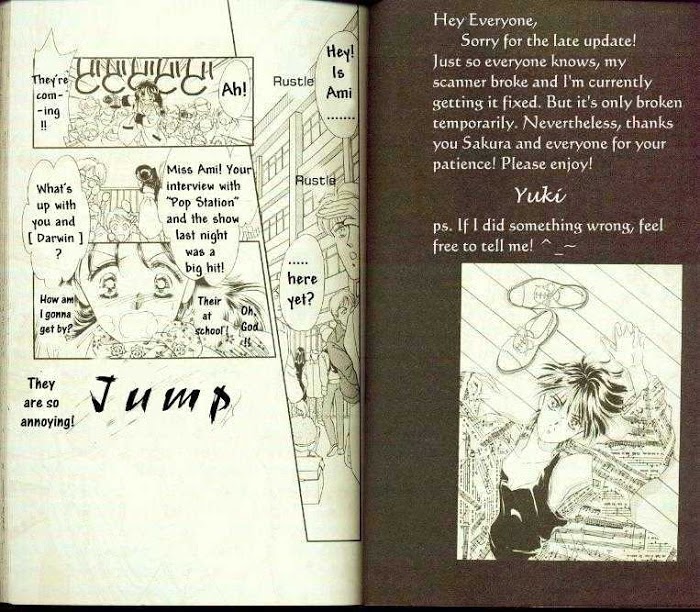 Hey!
Is
Ami
........
Rustle
Rustle
.....
here
yet?
Ah!
They're
com-
-ing
!!
Miss Ami! Your
interview with
"Pop Station"
and the show
last night
was a
big hit!
What's
up with
you and
[ Darwin ]
?
Oh,
God
!!
Their
at
school!
How am
I gonna
get by?
They
are so
annoying!
Jump
Hey Everyone,
Sorry for the late update!
Just so everyone knows, my
scanner broke and I'm currently
getting it fixed. But it's only broken
temporarily. Nevertheless, thanks
you Sakura and everyone for your
patience! Please enjoy!
Yuki
ps. If I did something wrong, feel
free to tell me! ^_~